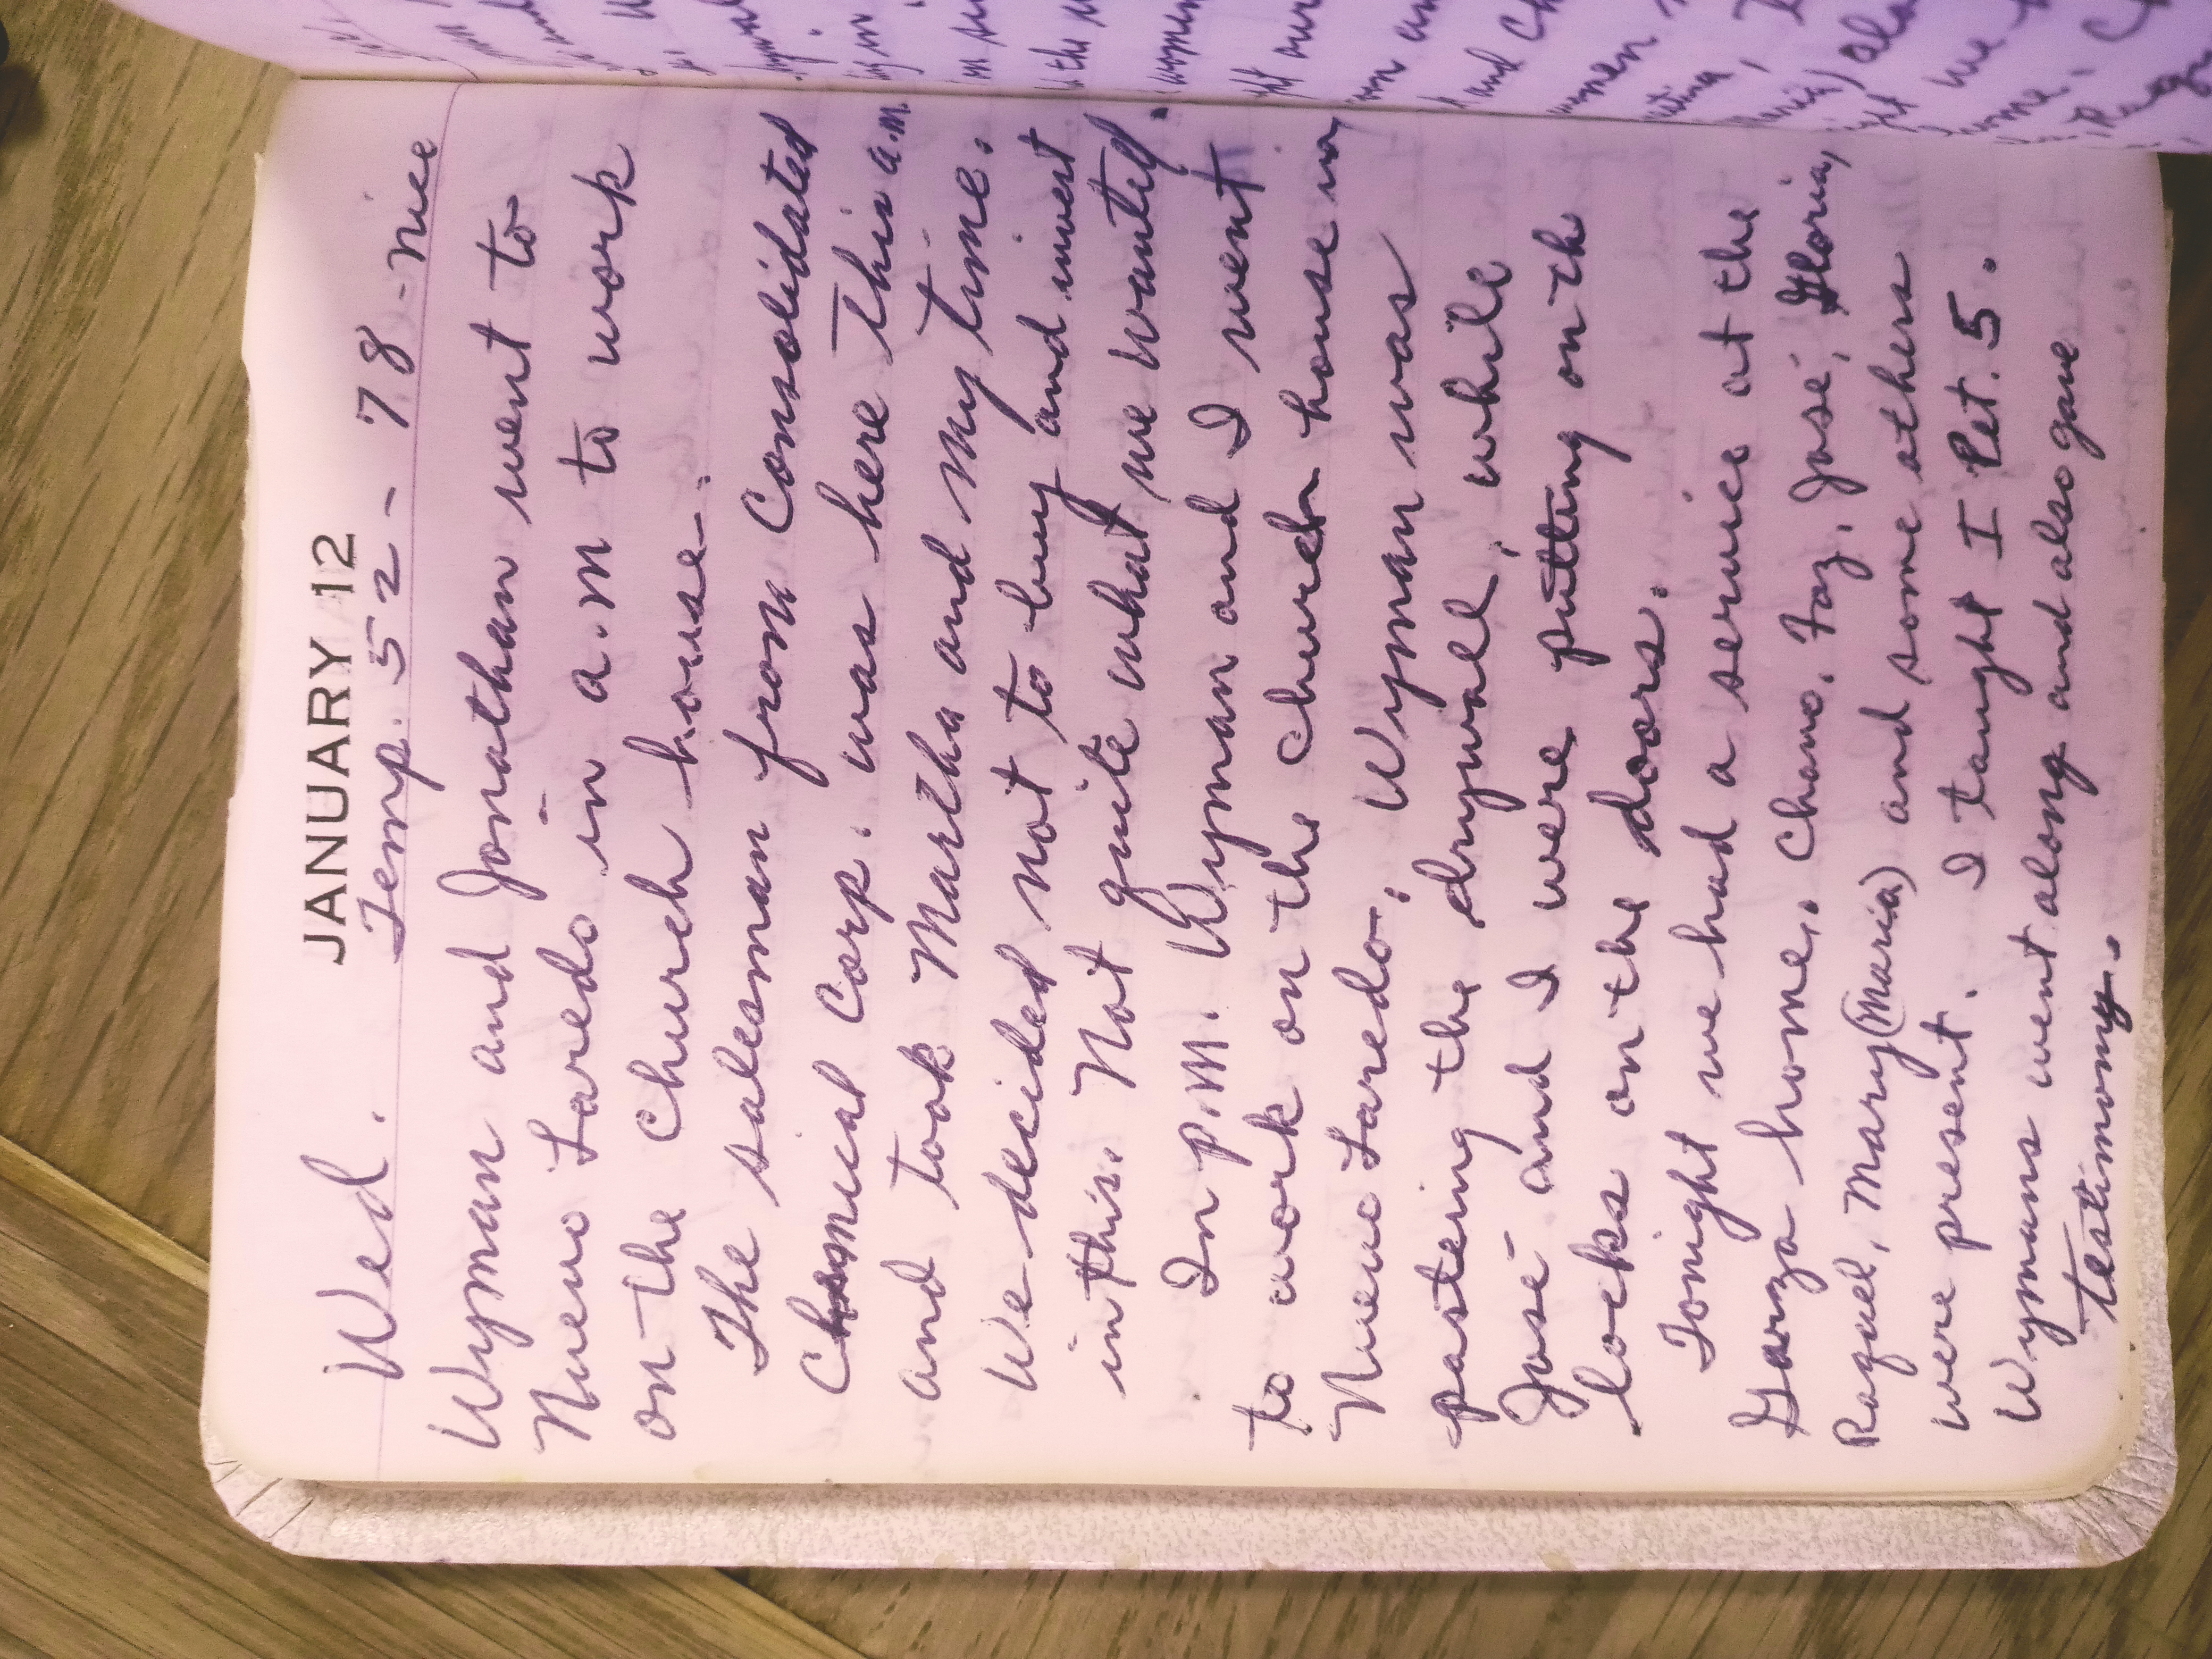 JANUARY 12
Wed. Temp. 52 - 78 - nice
Wyman and Jonathan went to
Nuevo Laredo in a.m to work
on the church house.
The salesman from Consolidated
Chemical Corp. was here this a.m.
and took Martha and my time.
We decided not to buy and invest
in this. Not quite what we wanted.
In p.m. Wyman and I went
to work on the church house in
Nuevo Laredo. Wyman was
pasteing the drywall, while
José and I were putting on th
locks on the doors.
Tonight we had a service at the
Garza home. Chano, Foz, José, Gloria,
Raquel, Mary (Maria) and some others
were present. I taught I Pet. 5.
Wymans went along and also gave
testimony.